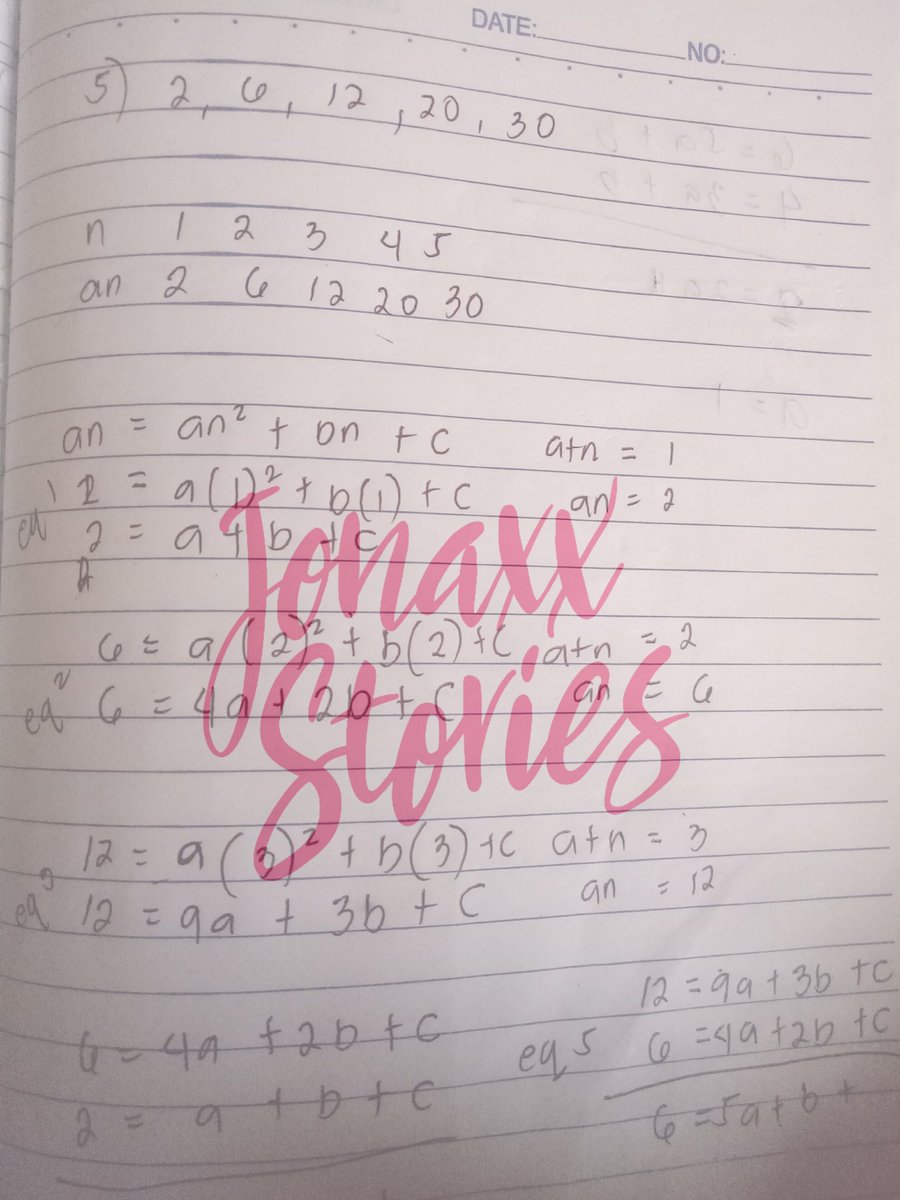 DATE: NO:
5) 2, 6, 12, 20, 30
n 1 2 3 4 5
an 2 6 12 20 30
an = an² + bn + c atn = 1
2 = a(1)² + b(1) + c an = 2
eq 1 2 = a + b + c
Jonaxx
Stories
6 = a(2)² + b(2) + c atn = 2
eq 2 6 = 4a + 2b + c an = 6
12 = a(3)² + b(3) + c atn = 3
eq 3 12 = 9a + 3b + c an = 12
12 = 9a + 3b + c
6 = 4a + 2b + c eq 5 6 = 4a + 2b + c
2 = a + b + c 6 = 5a + b +